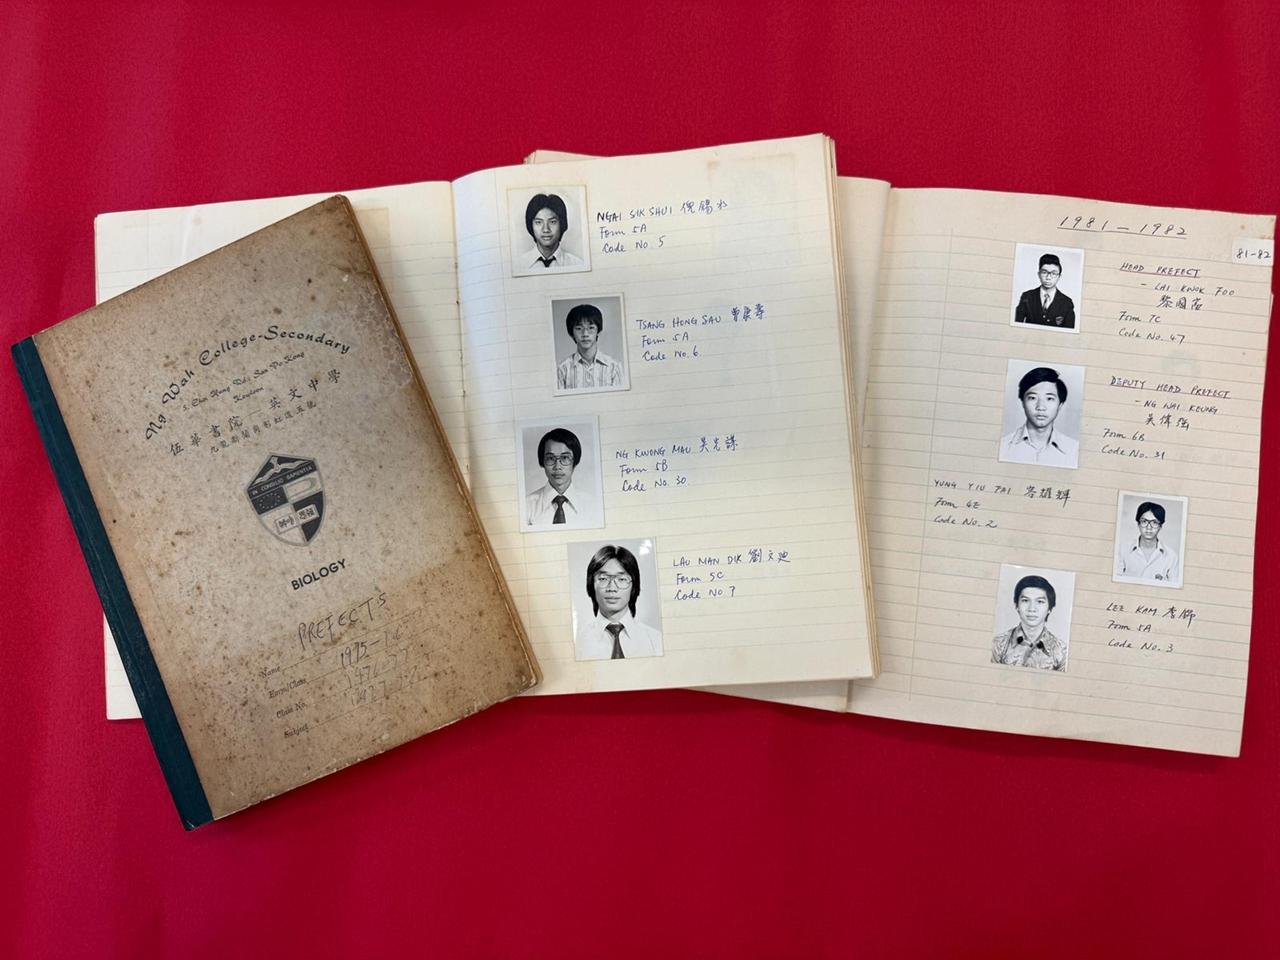 Ng Wah College-Secondary
5, Choi Hung Rd., San Po Kong
Kowloon
伍華書院——英文中學
九龍新蒲崗彩虹道五號
IN CONSILIO SAPIENTIA
BIOLOGY
PREFECTS
Name
1975-76
Form/Class
1976-77
Class No.
Subject
NGAI SIK SHUI 倪錫水
Form 5A
Code No. 5
TSANG HONG SAU 曾康壽
Form 5A
Code No. 6
NG KWONG MAU 吳光謀
Form 5B
Code No. 30
LAU MAN DIK 劉文迪
Form 5C
Code No 7
1981-1982
81-82
HEAD PREFECT
- LAI KWOK FOO
黎國
Form 7C
Code No. 47
DEPUTY HEAD PREFECT
- NG WAI KEUNG
吳偉強
Form 6B
Code No. 31
YUNG YIU FAI 容耀輝
Form 4E
Code No. 2
LEE KAM 李錦
Form 5A
Code No. 3